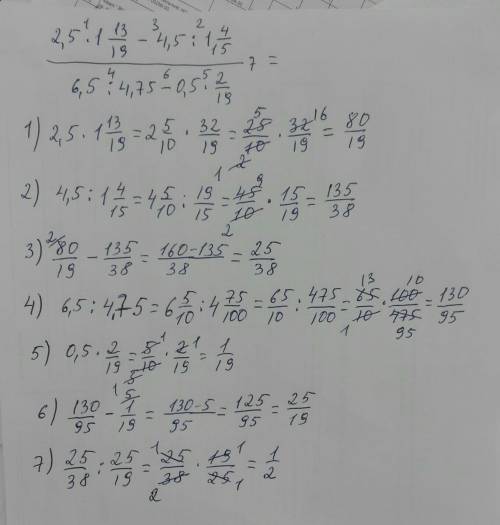 (2,5 · 1 13/19 − 4,5 : 1 4/15) / (6,5 : 4,75 − 0,5 · 2/19) =
1) 2,5 · 1 13/19 = 2 5/10 · 32/19 = 25/10 · 32/19 = 80/19
2) 4,5 : 1 4/15 = 4 5/10 : 19/15 = 45/10 · 15/19 = 135/38
3) 80/19 − 135/38 = (160−135)/38 = 25/38
4) 6,5 : 4,75 = 6 5/10 : 4 75/100 = 65/10 : 475/100 = 65/10 · 100/475 = 130/95
5) 0,5 · 2/19 = 5/10 · 2/19 = 1/19
6) 130/95 − 1/19 = (130−5)/95 = 125/95 = 25/19
7) 25/38 : 25/19 = 25/38 · 19/25 = 1/2